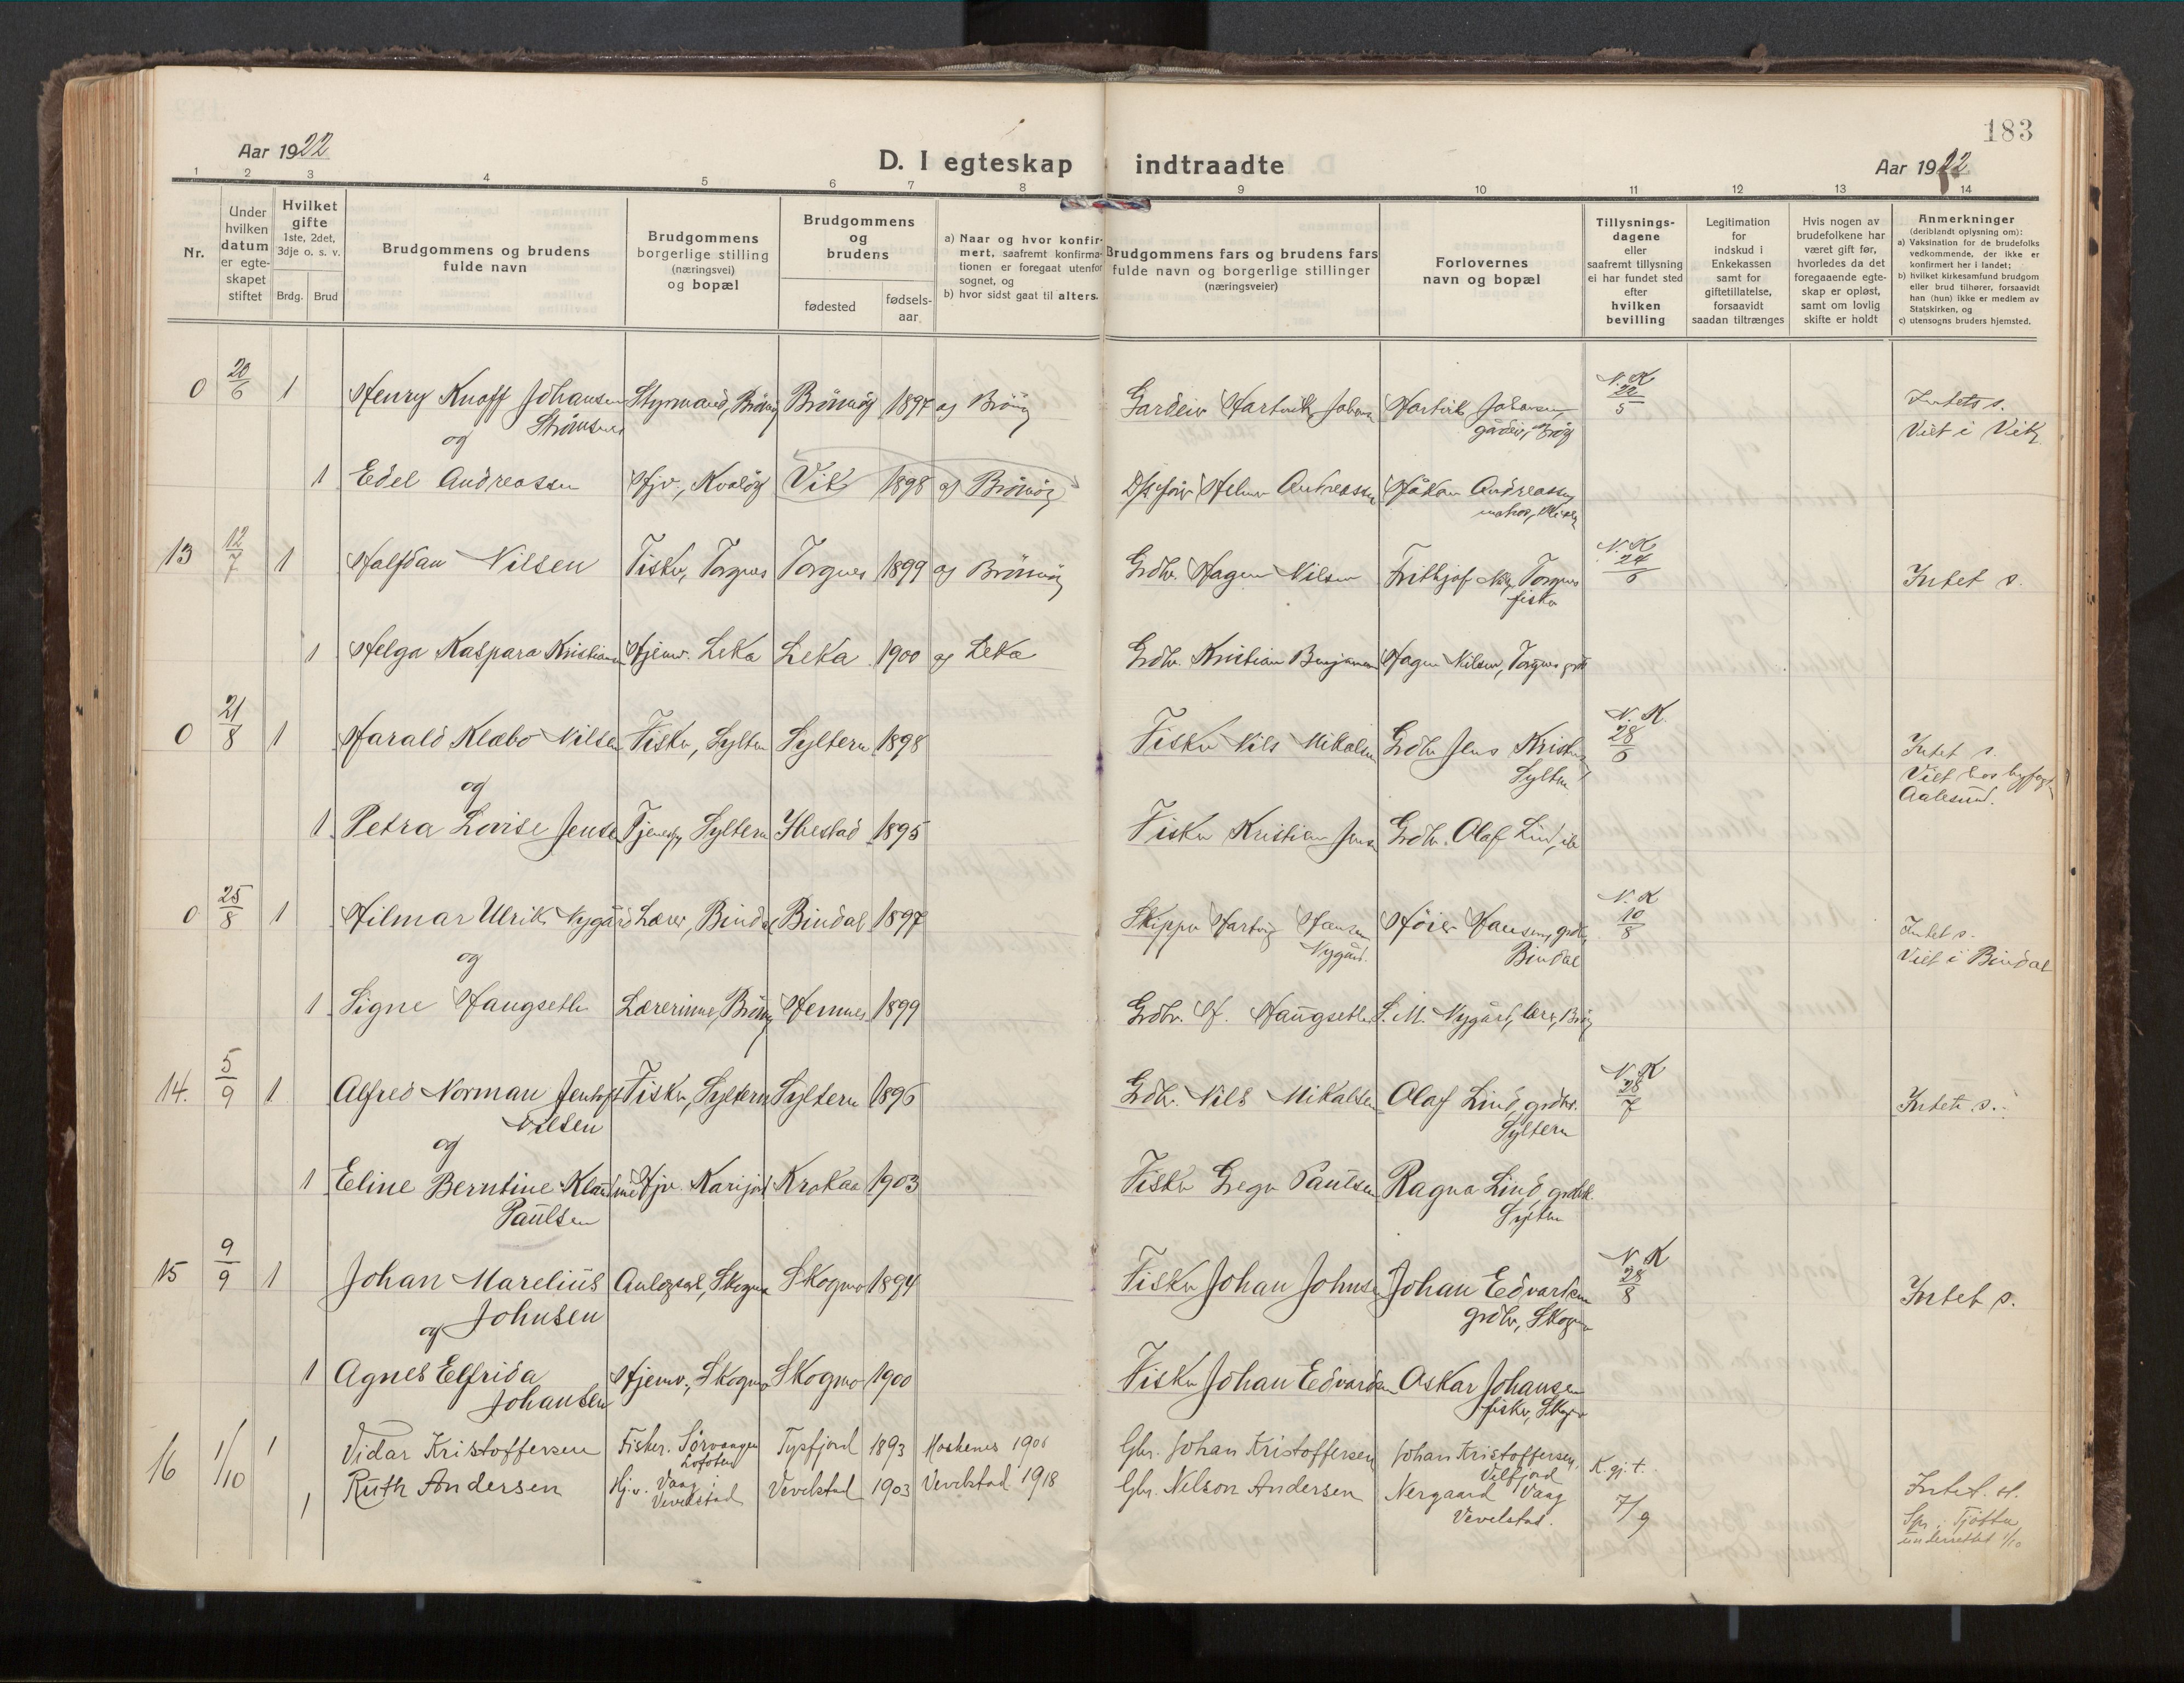 183
Aar 1922
D. I egteskap indtraadte
Aar 1922
1 2 3 4 5 6 7 8 9 10 11 12 13 14
Nr.
Under hvilken datum er egte-skapet stiftet
Hvilket gifte 1ste, 2det, 3dje o. s. v.
Brdg. Brud
Brudgommens og brudens fulde navn
Brudgommens borgerlige stilling (næringsvei) og bopæl
Brudgommens og brudens
fødested
fødsels-aar
a) Naar og hvor konfir-mert, saafremt konfirma-tionen er foregaat utenfor sognet, og
b) hvor sidst gaat til alters.
Brudgommens fars og brudens fars fulde navn og borgerlige stillinger (næringsveier)
Forlovernes navn og bopæl
Tillysnings-dagene eller saafremt tillysning ei har fundet sted efter hvilken bevilling
Legitimation for indskud i Enkekassen samt for giftetillatelse, forsaavidt saadan tiltrænges
Hvis nogen av brudefolkene har været gift før, hvorledes da det foregaaende egte-skap er opløst, samt om lovlig skifte er holdt
Anmerkninger (deriblandt oplysning om):
a) Vaksination for de brudefolks vedkommende, der ikke er konfirmert her i landet;
b) hvilket kirkesamfund brudgom eller brud tilhører, forsaavidt han (hun) ikke er medlem av Statskirken, og
c) utensogns bruders hjemsted.
0 20/6 1 Henry Knoff Johansen Styrmand, Brönöy Brönnöy 1897 Brönöy Hartvik Johansen N. K 22/5 Intet s.
og Strømsnes gårdbr, Bröy Viet i Vik
1 Edel Andreassen Hjv., Kvalöy Vik 1898 Brönnöy Helmer Andreassen Håkon Andreassen
13 12/7 1 Halfdan Nilsen Fisker, Torgnes Torgnes 1899 Brönnöy Grdbr. Hagen Nilsen Frithjof Nils, Torgnes N. K 24/6 Intet s.
fisker
1 Helga Kaspara Kristiansen Hjemv. Leka Leka 1900 Leka Grdbr. Kristian Benjaminsen Hagen Nilsen, Torgnes
0 21/8 1 Harald Klæbo Nilsen Fisker, Syltern Syltern 1898 Fisker Nils Mikalsen Grdbr Jens Kristensen N. K. 28/6 Intet s.
og Syltern Viet hos byfogt
Aalesund.
1 Petra Lovise Jensen Syltern Ibestad 1895 Fisker Kristian Jensen Grdbr. Olaf Lind, ib
0 25/8 1 Hilmar Ulrik Nygård Lærer, Bindal Bindal 1897 Skipper Hartvig Hansen Höier Hansen, grdbr, N. K 10/8 Intet s.
og Nygård. Bindal Viet i Bindal
1 Signe Haugseth Lærerinne, Brönnöy Hemnes 1899 Grdbr. H. Haugseth S. M. Nygård, lærer, Bröy
14. 5/9 1 Alfred Norman Jentoft Fisker, Syltern Syltern 1896 Grdbr. Nils Mikalsen Olaf Lind, grdbr. N. K 28/7 Intet s.
Nilsen Syltern
og
1 Eline Berntine Klaudine Hjv. Karijord Krokaa 1903 Fisker Greger Paulsen Ragna Lind,
Paulsen Syltern
15 9/9 1 Johan Marelius Anlegsarb, Skogmo Skogmo 1894 Fisker Johan Johnsen Johan Edvardsen N. K 28/8 Intet s.
og Johnsen grdbr, Skogmo
1 Agnes Elfrida Hjemv., Skogmo Skogmo 1900 Fisker Johan Edvardsen Oskar Johansen
Johansen fisker, Skogmo
16 1/10 1 Vidar Kristoffersen Fisker. Sörvaagen Tysfjord 1893 Moskenes 1908 Gbr. Johan Kristoffersen Johan Kristoffersen, K. gj. t.
Lofoten Velfjord
1 Ruth Andersen Hj.v. Vaag i Vevelstad 1903 Vevelstad 1918 Gbr. Nelson Andersen Nergaard Vaag 7/9 Intet. st.
Vevelstad Vevelstad. Spr. i Tjötta
underrettet 1/10